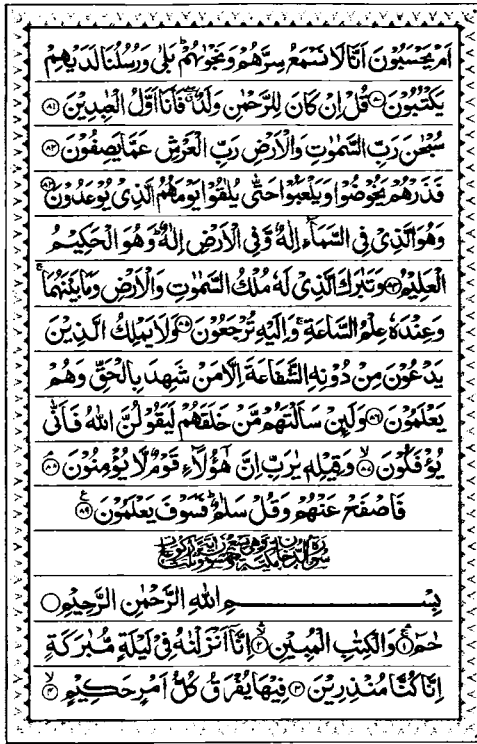 اَمْ يَحْسَبُوْنَ اَنَّا لَا نَسْمَعُ سِرَّهُمْ وَنَجْوٰىهُمْ ؕ بَلٰى وَرُسُلُنَا لَدَيْهِمْ
يَكْتُبُوْنَ ﴿۸۰﴾ قُلْ اِنْ كَانَ لِلرَّحْمٰنِ وَلَدٌ ۖ فَاَنَا اَوَّلُ الْعٰبِدِيْنَ ﴿۸۱﴾
سُبْحٰنَ رَبِّ السَّمٰوٰتِ وَالْاَرْضِ رَبِّ الْعَرْشِ عَمَّا يَصِفُوْنَ ﴿۸۲﴾
فَذَرْهُمْ يَخُوْضُوْا وَيَلْعَبُوْا حَتّٰى يُلٰقُوْا يَوْمَهُمُ الَّذِيْ يُوْعَدُوْنَ ﴿۸۳﴾
وَهُوَ الَّذِيْ فِى السَّمَآءِ اِلٰهٌ وَّفِى الْاَرْضِ اِلٰهٌ ؕ وَهُوَ الْحَكِيْمُ
الْعَلِيْمُ ﴿۸۴﴾ وَتَبٰرَكَ الَّذِيْ لَهٗ مُلْكُ السَّمٰوٰتِ وَالْاَرْضِ وَمَا بَيْنَهُمَا ۚ
وَعِنْدَهٗ عِلْمُ السَّاعَةِ ۚ وَاِلَيْهِ تُرْجَعُوْنَ ﴿۸۵﴾ وَلَا يَمْلِكُ الَّذِيْنَ
يَدْعُوْنَ مِنْ دُوْنِهِ الشَّفَاعَةَ اِلَّا مَنْ شَهِدَ بِالْحَقِّ وَهُمْ
يَعْلَمُوْنَ ﴿۸۶﴾ وَلَئِنْ سَاَلْتَهُمْ مَّنْ خَلَقَهُمْ لَيَقُوْلُنَّ اللّٰهُ فَاَنّٰى
يُؤْفَكُوْنَ ﴿۸۷﴾ وَقِيْلِهٖ يٰرَبِّ اِنَّ هٰٓؤُلَآءِ قَوْمٌ لَّا يُؤْمِنُوْنَ ﴿۸۸﴾
فَاصْفَحْ عَنْهُمْ وَقُلْ سَلٰمٌ ؕ فَسَوْفَ يَعْلَمُوْنَ ﴿۸۹﴾
بِسْمِ اللّٰهِ الرَّحْمٰنِ الرَّحِيْمِ
حٰمٓ ﴿۱﴾ وَالْكِتٰبِ الْمُبِيْنِ ﴿۲﴾ اِنَّاۤ اَنْزَلْنٰهُ فِيْ لَيْلَةٍ مُّبٰرَكَةٍ
اِنَّا كُنَّا مُنْذِرِيْنَ ﴿۳﴾ فِيْهَا يُفْرَقُ كُلُّ اَمْرٍ حَكِيْمٍ ﴿۴﴾